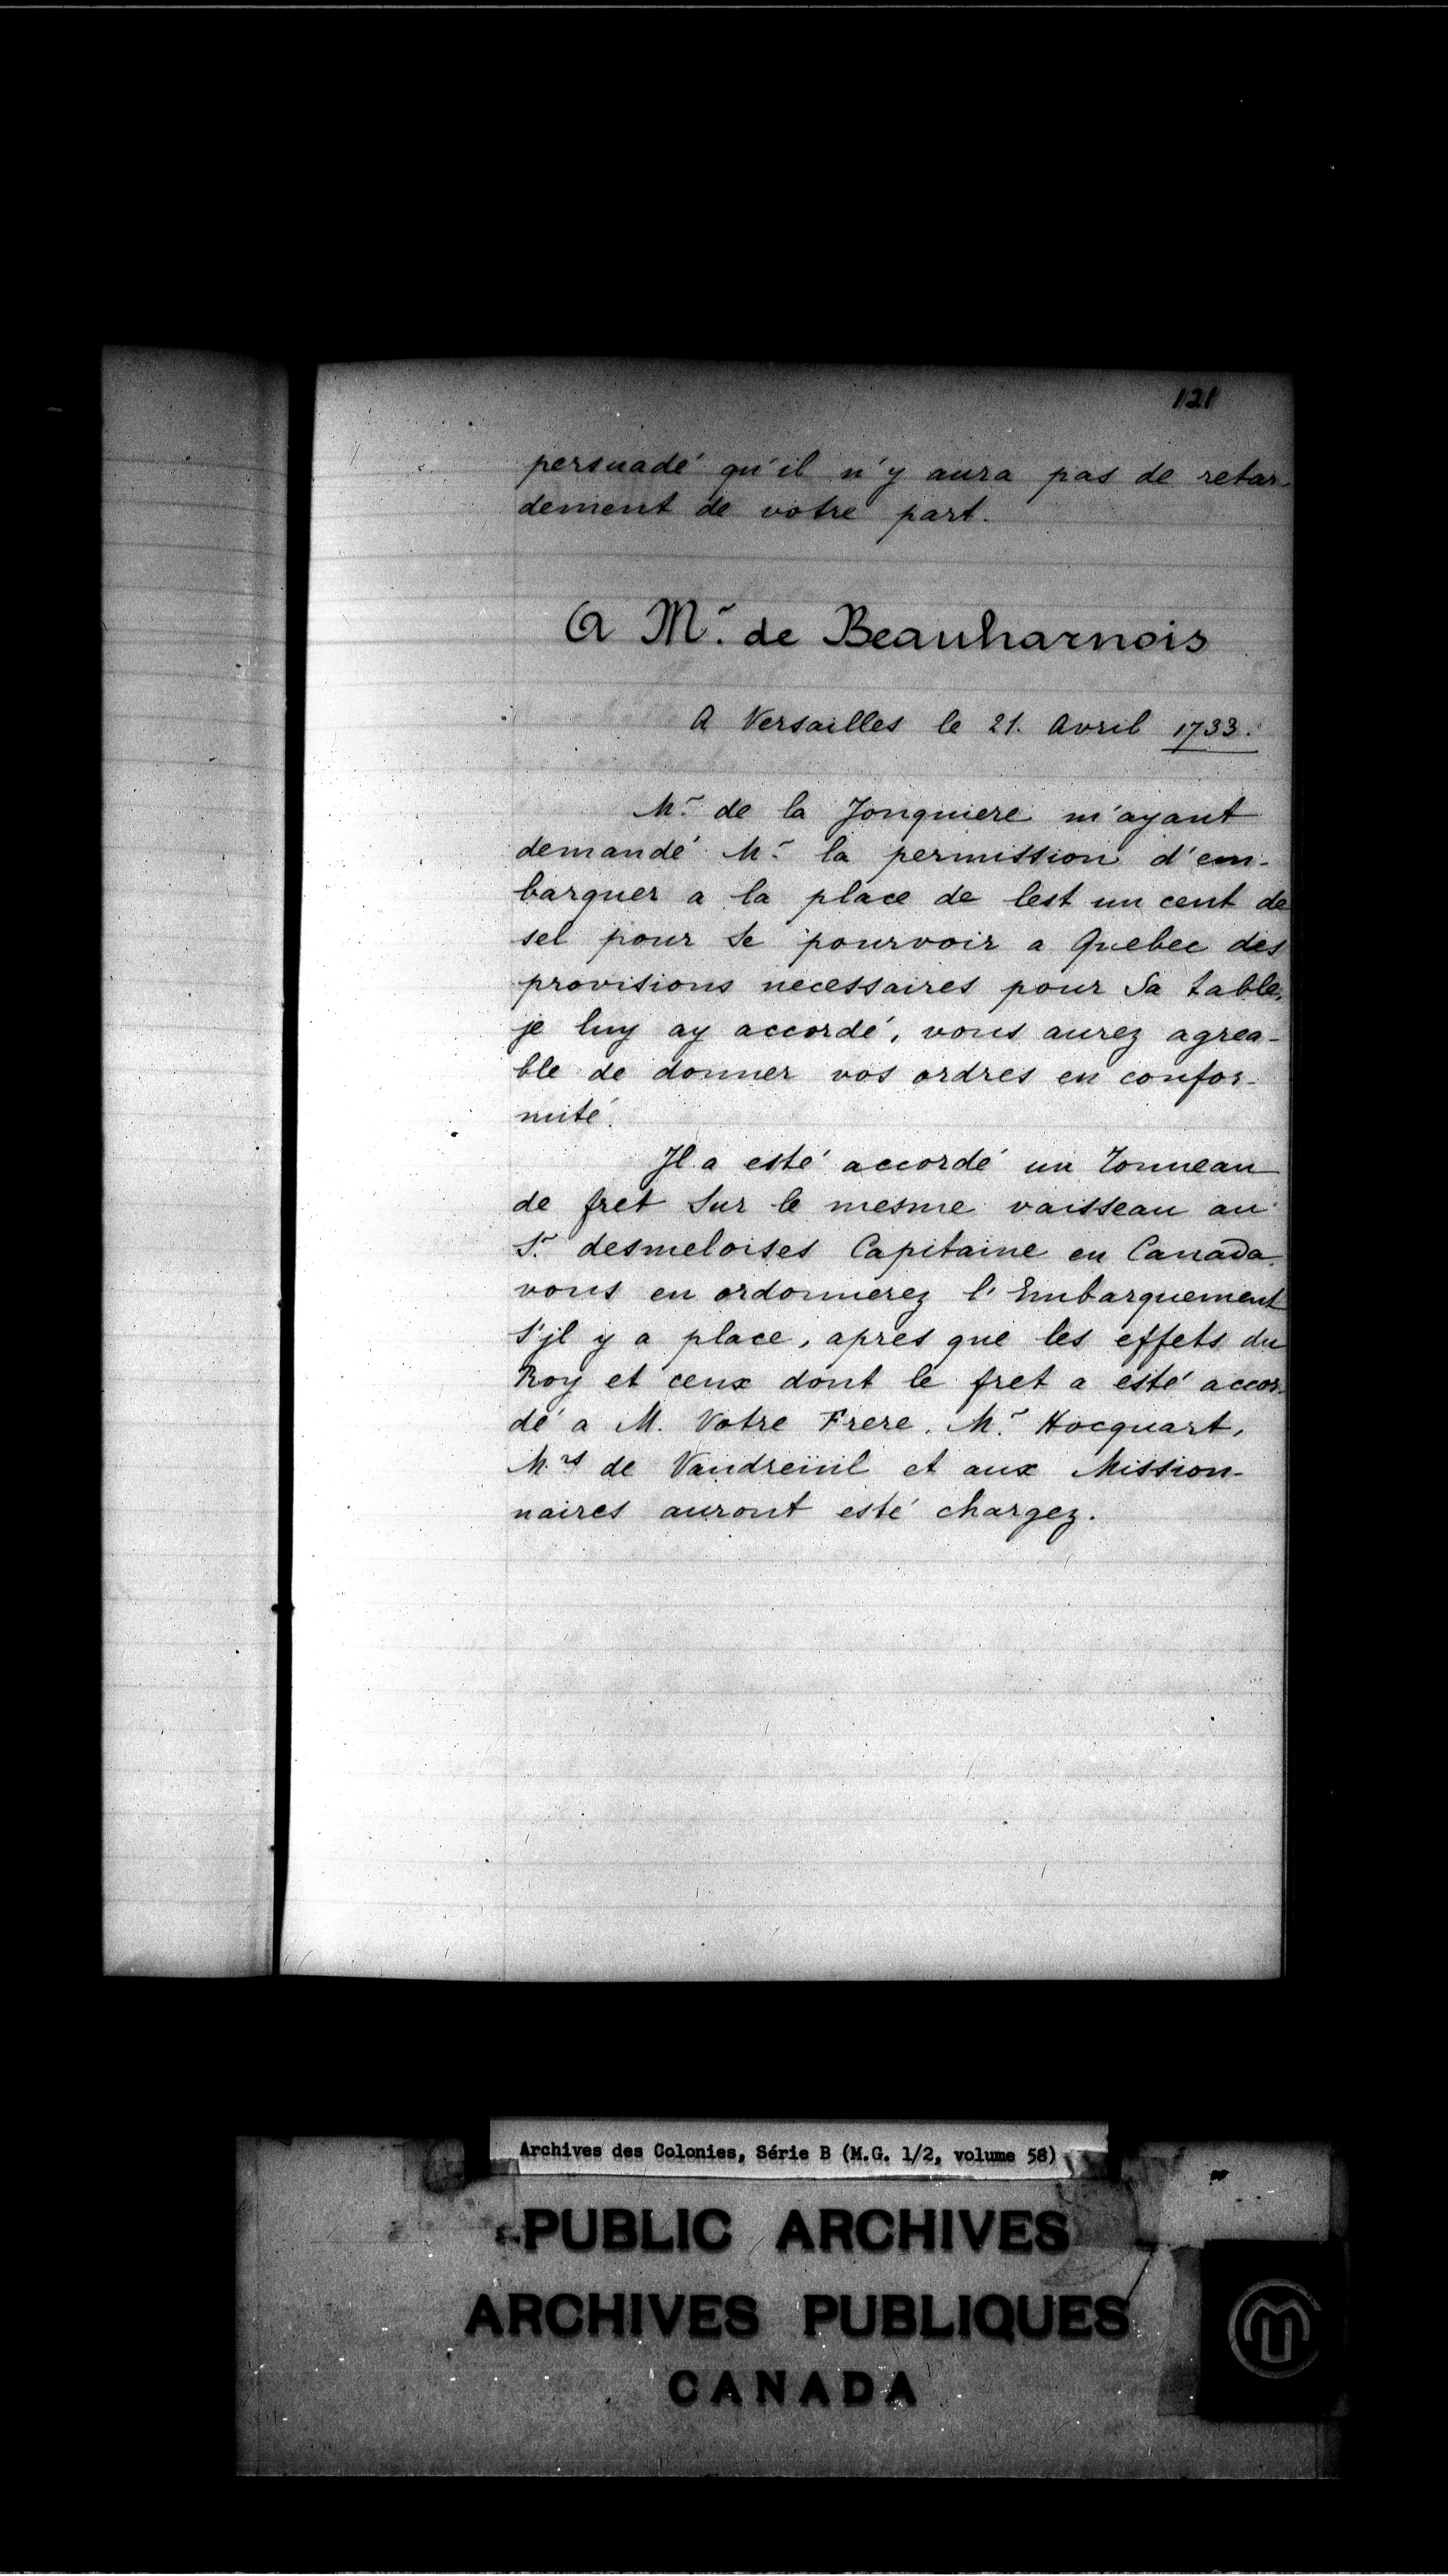 121
persuadé qu'il n'y aura pas de retar-
dement de votre part.
A Mr. de Beauharnois
A Versailles le 21. Avril 1733.
Mr. de la Jonquiere m'ayant
demandé Mr. la permission d'em-
barquer a la place de lest un cent de
sel pour se pourvoir a Quebec des
provisions necessaires pour sa table,
je luy ay accordé, vous aurez agrea-
ble de donner vos ordres en confor-
mité.
Jl a esté accordé un Tonneau
de fret sur le mesme vaisseau au
Sr. desmeloises Capitaine en Canada,
vous en ordonnerez l'Embarquement
s'jl y a place, apres que les effets du
Roy et ceux dont le fret a esté accor-
dé a M. Votre Frere, Mr. Hocquart,
M.rs de Vaudreüil et aux Mission-
naires auront esté chargez.
Archives des Colonies, Série B (M.G. 1/2, volume 58)
PUBLIC ARCHIVES
ARCHIVES PUBLIQUES
CANADA